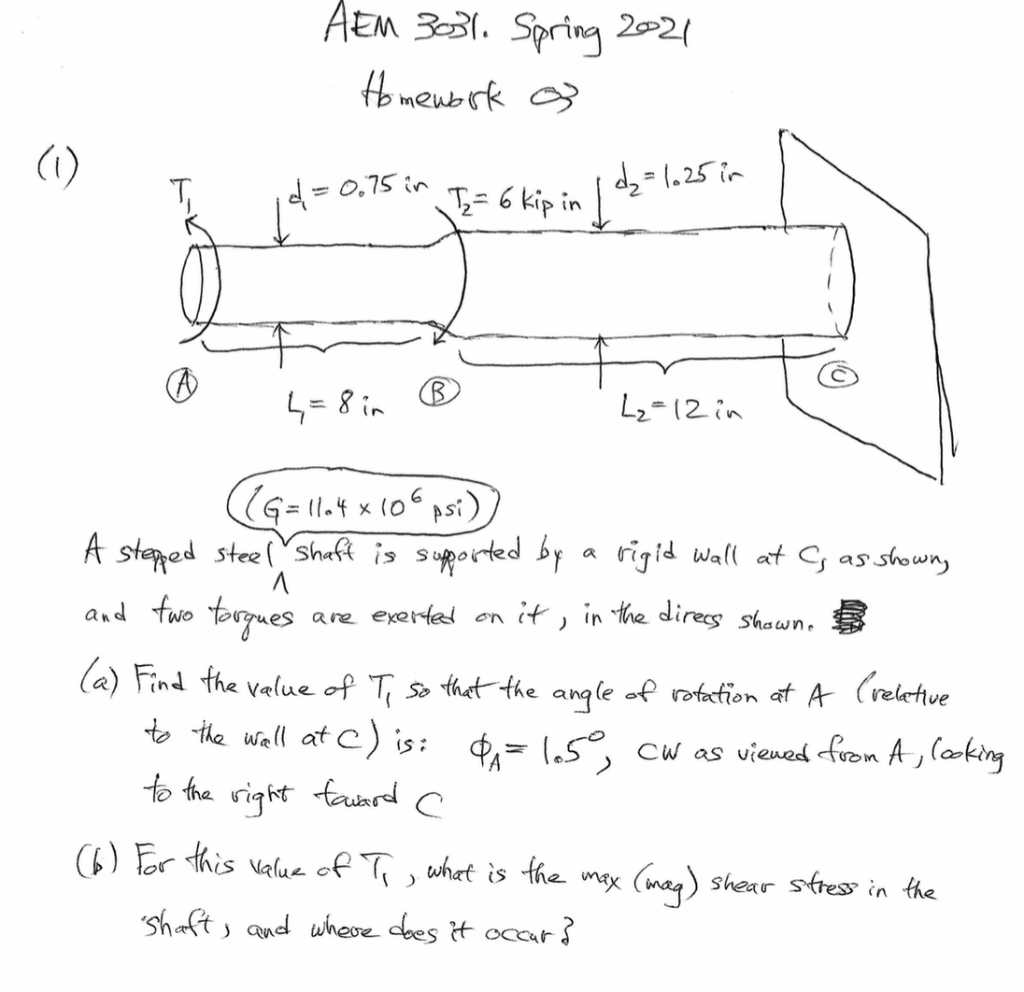 AEM 3031. Spring 2021
Homework 03
(1)
T₁
d₁ = 0.75 in
T₂ = 6 kip in
d₂ = 1.25 in
A
L₁ = 8 in
B
L₂ = 12 in
C
(G = 11.4 x 10⁶ psi)
A stepped steel ^ shaft is supported by a rigid wall at C, as shown,
and two torques are exerted on it, in the direcs shown.
(a) Find the value of T₁ so that the angle of rotation at A (relative
to the wall at C) is: ϕ_A = 1.5°, CW as viewed from A, looking
to the right toward C
(b) For this value of T₁, what is the max (mag) shear stress in the
shaft, and where does it occur?